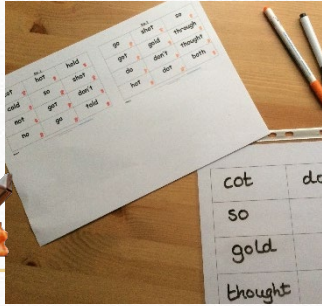 hot hold
cold so shot
not got don't
no go told
go shot so
got gold through
do don't thought
hot dot both
cot do
so
gold
thought